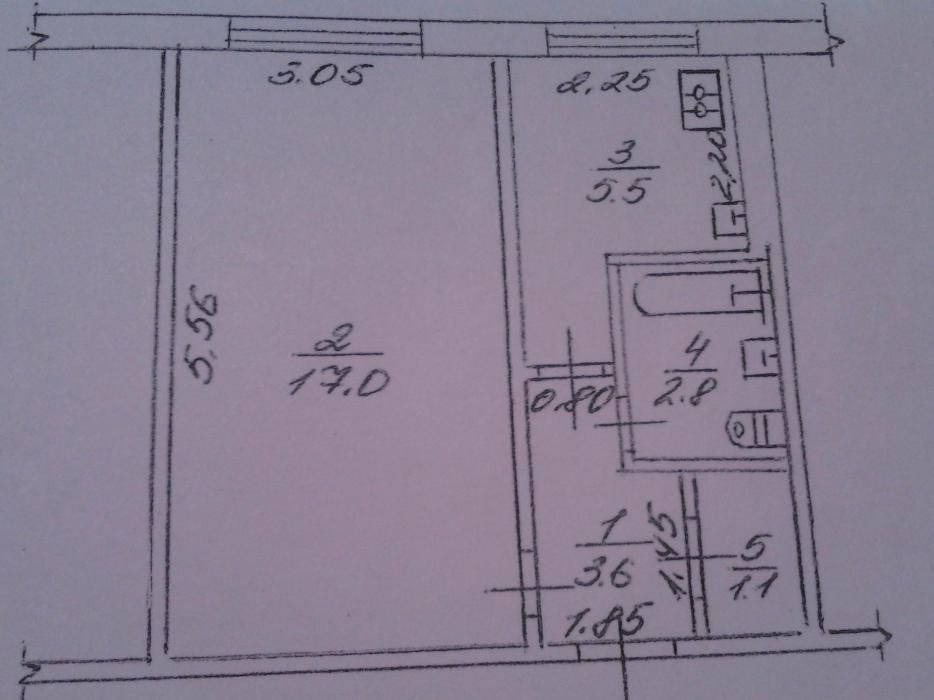 3.05
2.25
3
5.5
2,20
5.56
2
17.0
4
2.8
0.80
1
3.6
1.45
5
1.1
1.85